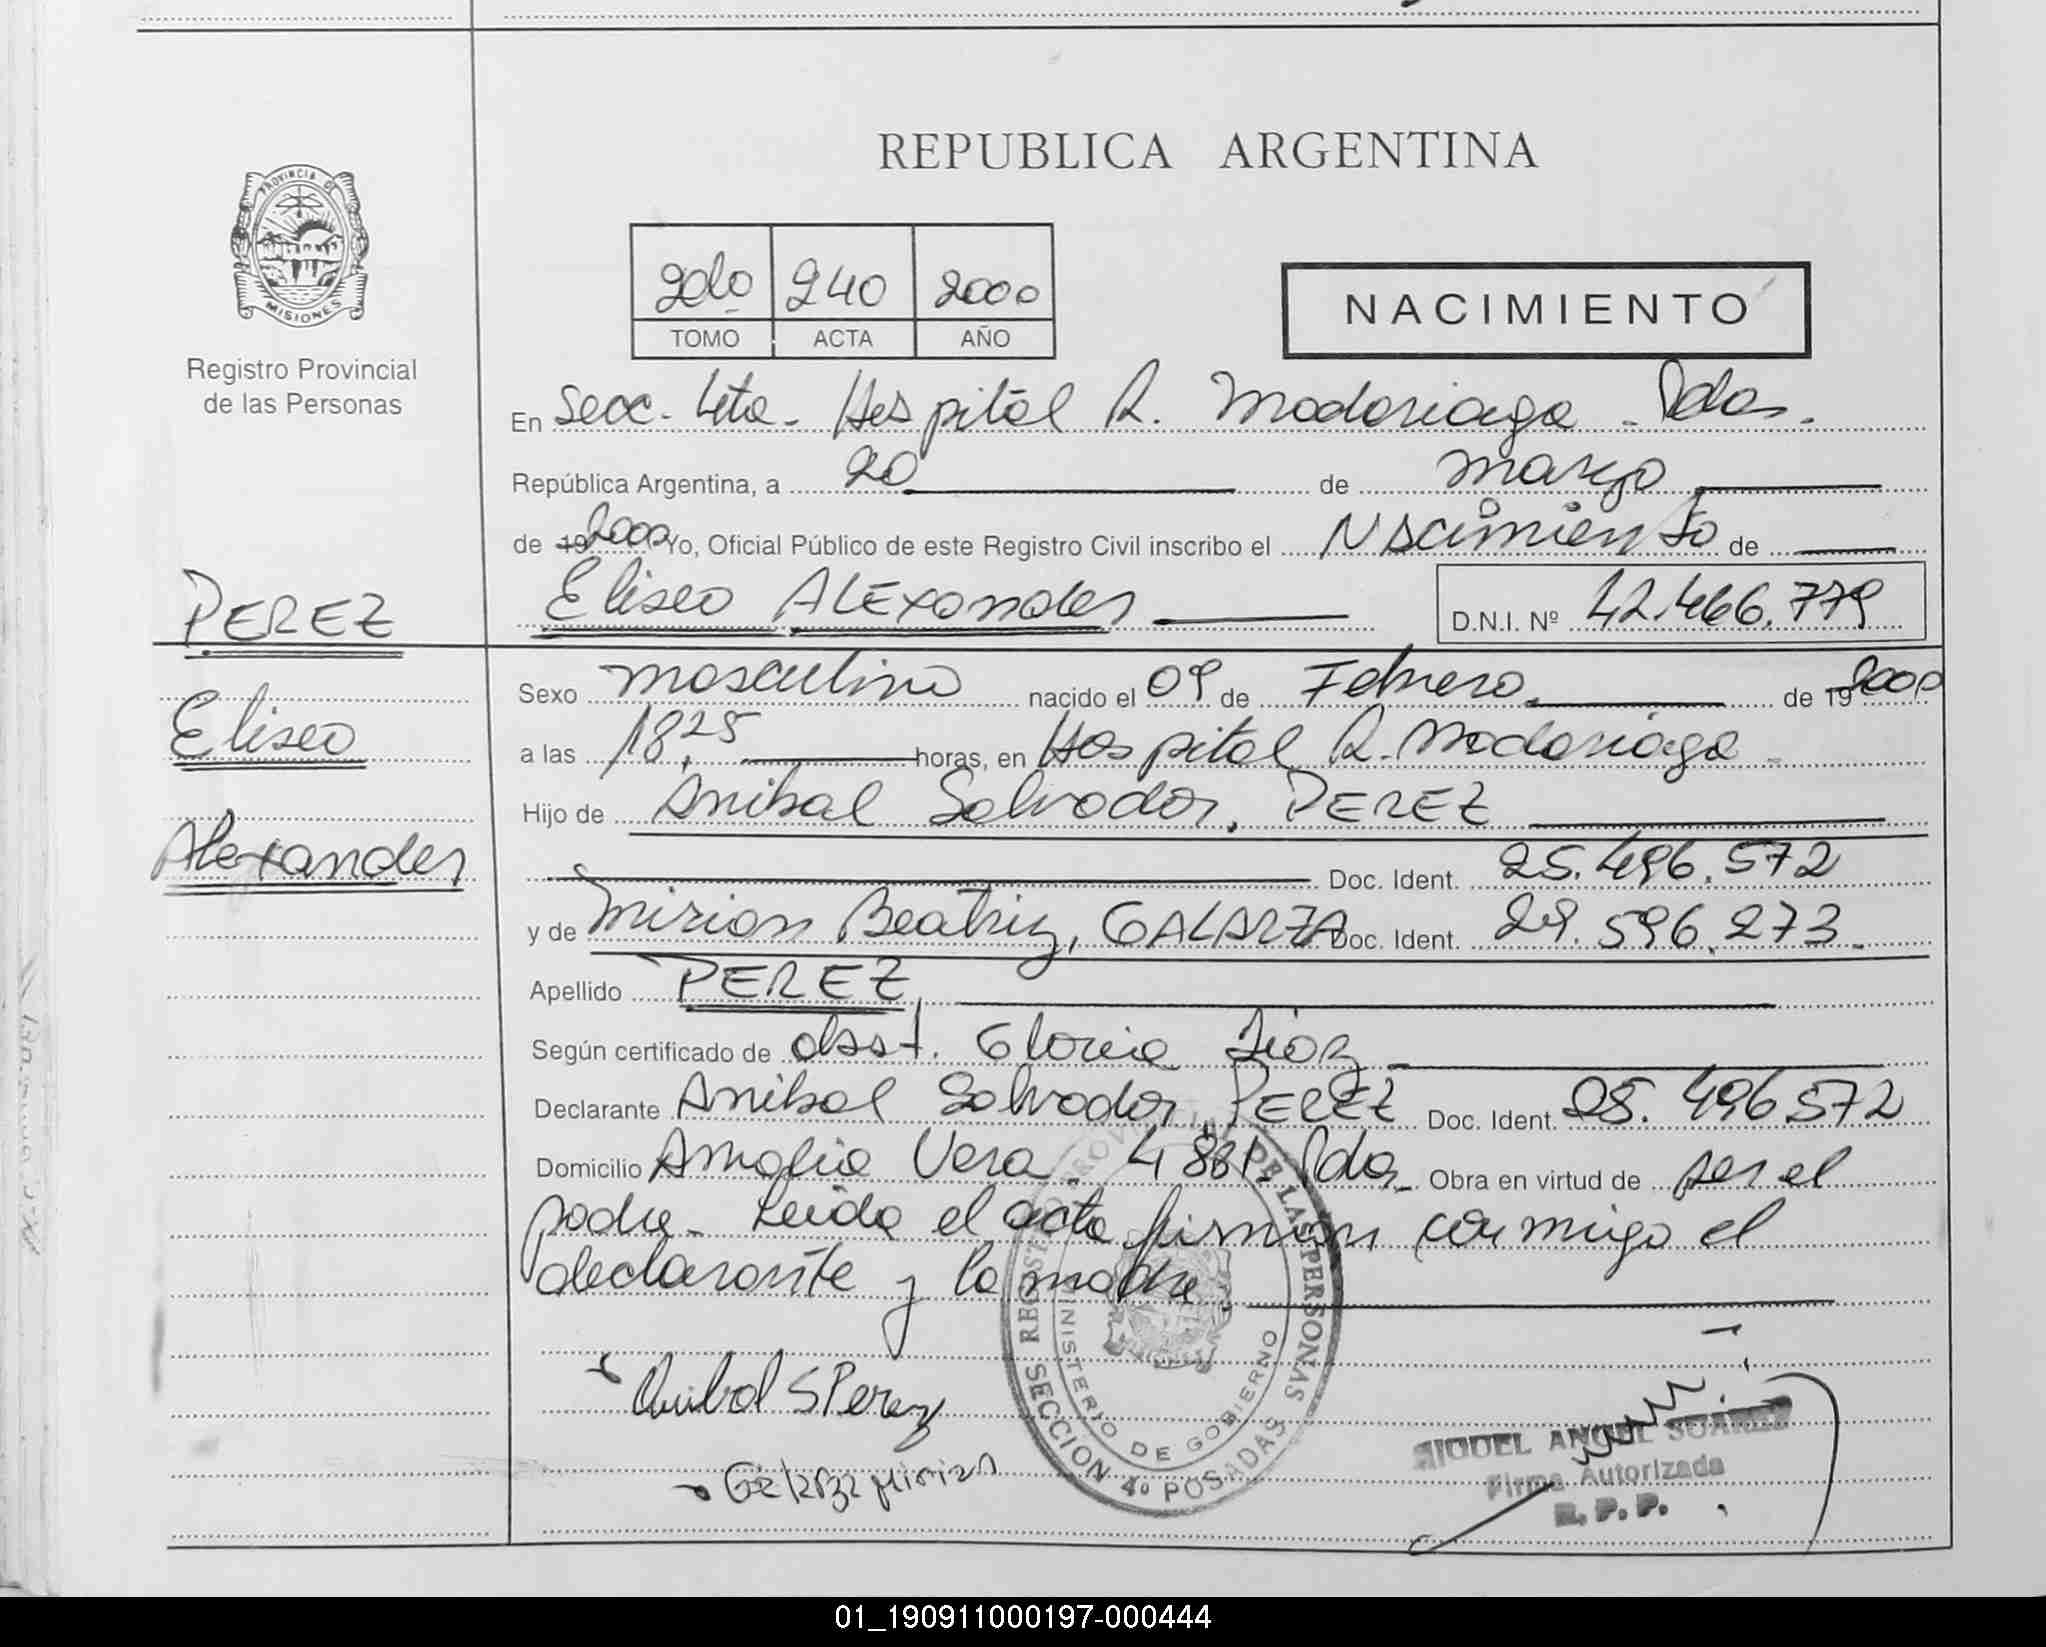 REPUBLICA ARGENTINA
PROVINCIA DE
MISIONES
Registro Provincial
de las Personas
2do 240 2000
TOMO ACTA AÑO
NACIMIENTO
En Secc. 4ta. Hospital R. Madariaga - Pdas.
República Argentina, a 20 de marzo
de 19 2000 Yo, Oficial Público de este Registro Civil inscribo el Nacimiento de
PEREZ
Eliseo ALExander D.N.I. Nº 42.466.779
Sexo masculino nacido el 09 de Febrero de 19 2000
Eliseo
a las 18,25 horas, en Hospital R. Madariaga
Hijo de Anibal Salvador, PEREZ
Alexander
Doc. Ident. 25.496.572
y de Mirian Beatriz, GALARZA Doc. Ident. 29.596.273
Apellido PEREZ
Según certificado de obst. Gloria Díaz
Declarante Anibal Salvador PEREZ Doc. Ident. 25.496572
Domicilio Amalia Vera 4881 Pdas Obra en virtud de ser el
padre - Leída el acta firman conmigo el
declarante y la madre.
REGISTRO PROVINCIAL DE LAS PERSONAS
MINISTERIO DE GOBIERNO
SECCION 4º POSADAS
Anibal S Perez
Galarza Mirian
MIGUEL ANGEL SUAREZ
Firma Autorizada
R.P.P.
01_190911000197-000444